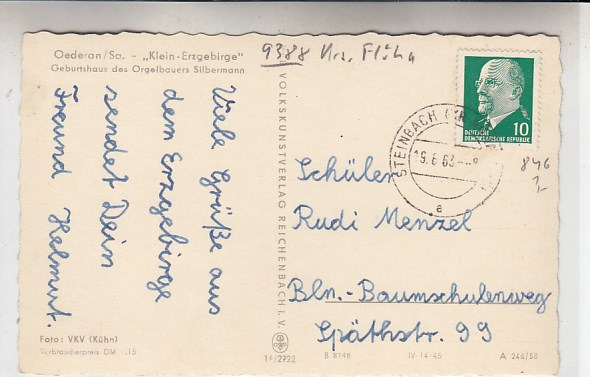 Oederan/Sa. - „Klein-Erzgebirge"
Geburtshaus des Orgelbauers Silbermann
9388 Krs. Flöha
Viele Grüße aus
dem Erzgebirge
sendet Dein
Freund Helmut.
VOLKSKUNSTVERLAG REICHENBACH I. V.
STEINBACH
19.6.63
a
DEUTSCHE
DEMOKRATISCHE REPUBLIK
10
846
Schüler
Rudi Menzel
Bln.-Baumschulenweg
Späthstr. 99
Foto: VKV (Kühn)
Verbraucherpreis DM -,15
14/2722
B 8148
IV-14-45
A 244/58